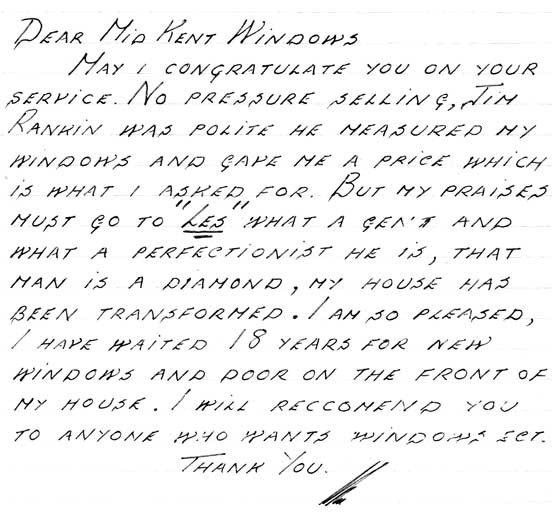 DEAR MID KENT WINDOWS
MAY I CONGRATULATE YOU ON YOUR
SERVICE. NO PRESSURE SELLING, JIM
RANKIN WAS POLITE HE MEASURED MY
WINDOWS AND GAVE ME A PRICE WHICH
IS WHAT I ASKED FOR. BUT MY PRAISES
MUST GO TO "LES" WHAT A GEN'T AND
WHAT A PERFECTIONIST HE IS, THAT
MAN IS A DIAMOND, MY HOUSE HAS
BEEN TRANSFORMED. I AM SO PLEASED,
I HAVE WAITED 18 YEARS FOR NEW
WINDOWS AND DOOR ON THE FRONT OF
MY HOUSE. I WILL RECCOMEND YOU
TO ANYONE WHO WANTS WINDOWS ECT.
THANK YOU.